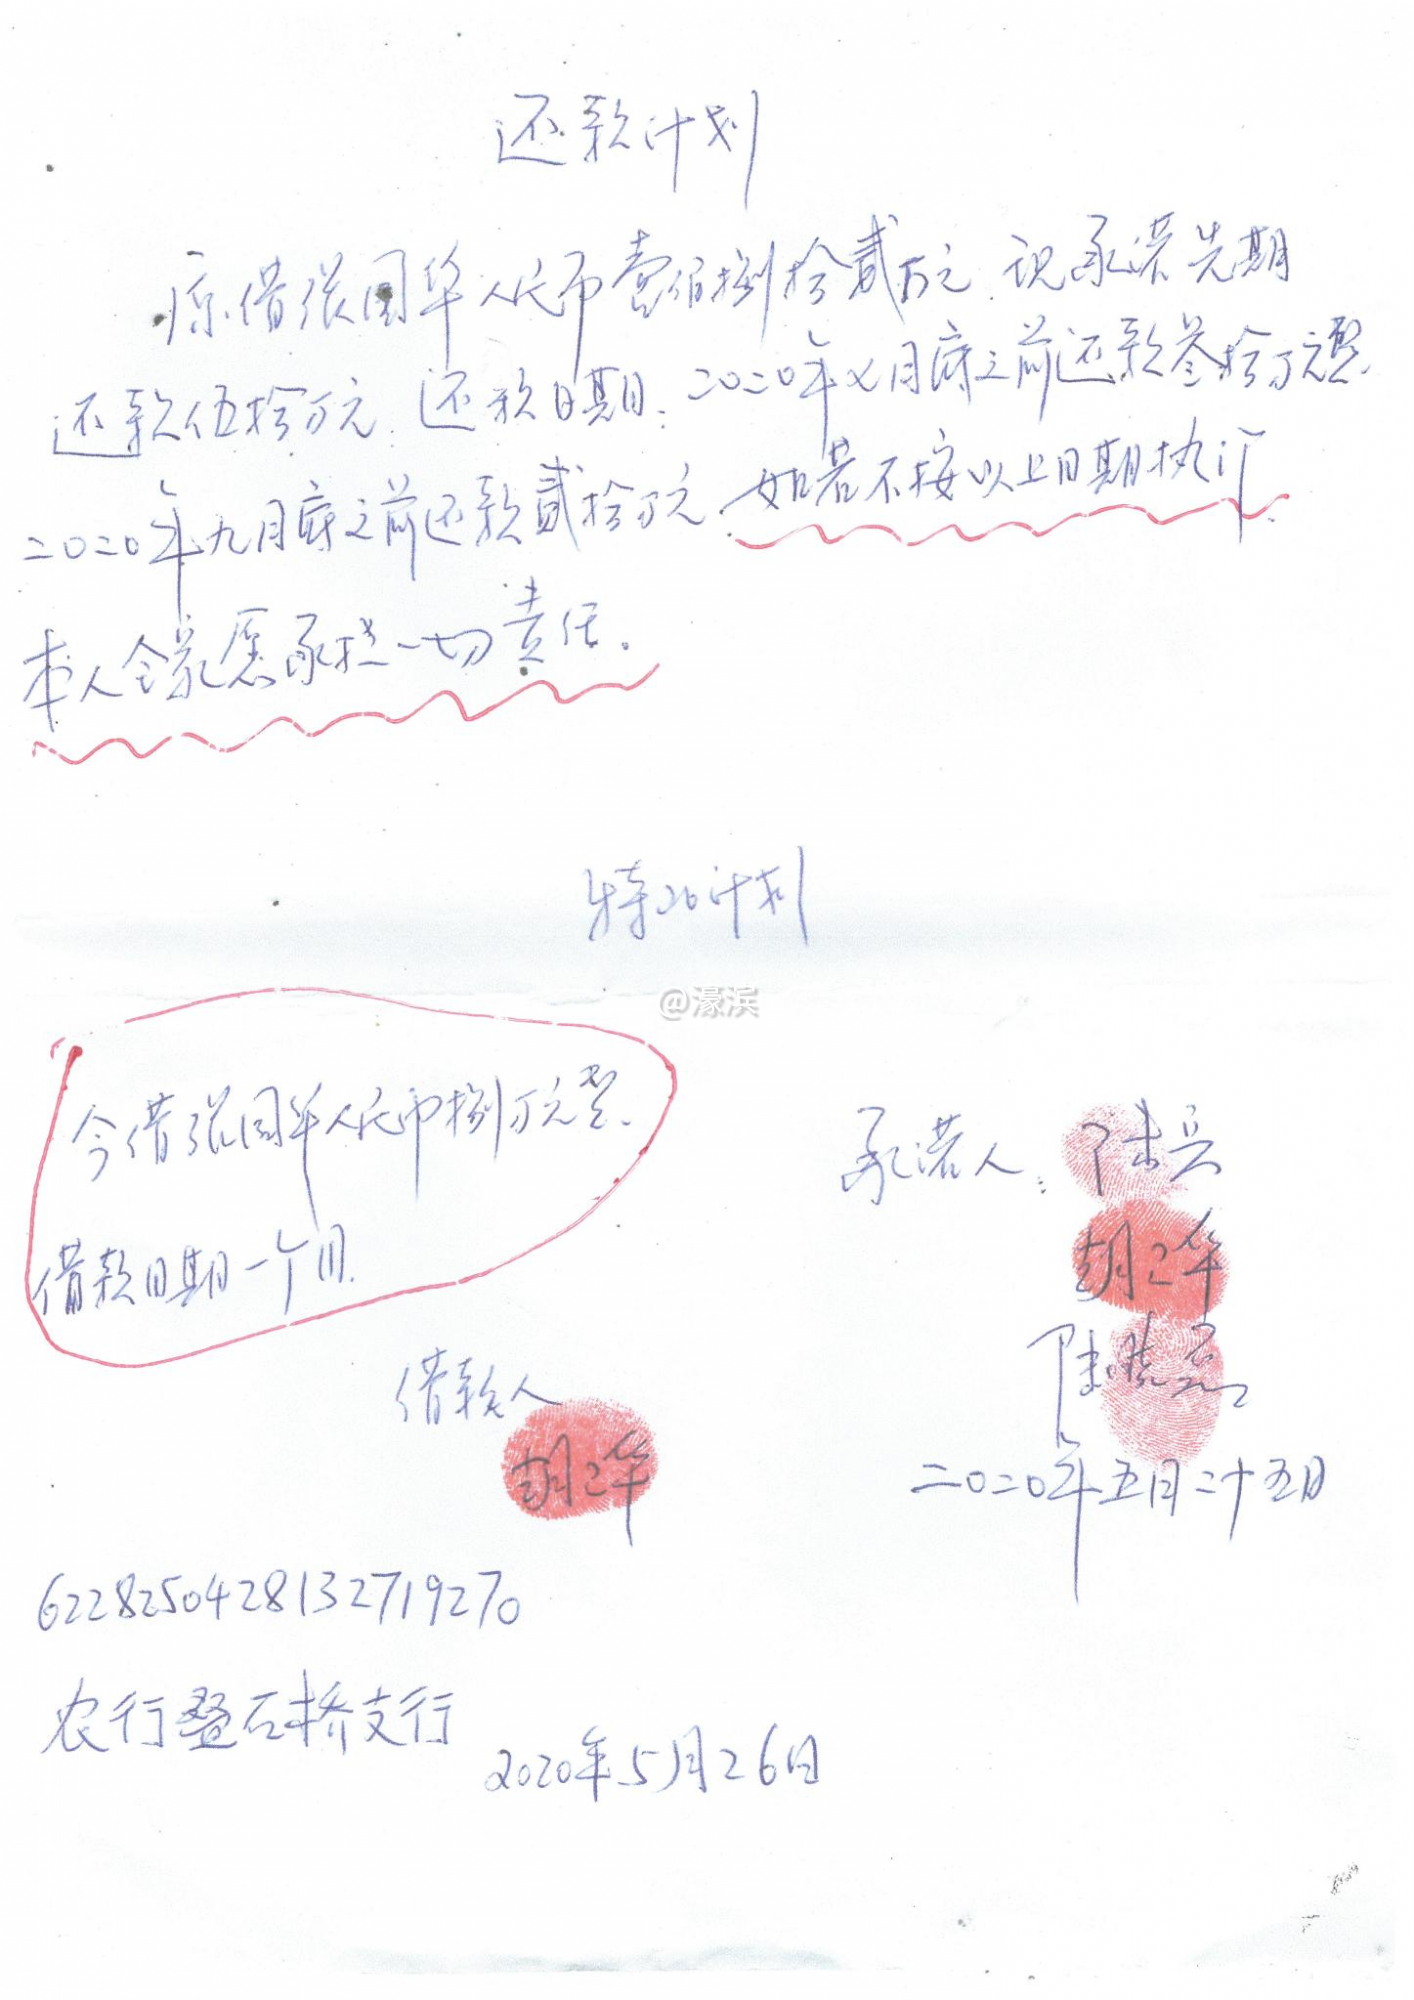 还款计划
原借张国华人民币壹佰捌拾贰万元.现承诺先期
还款伍拾万元.还款日期:二0二0年七月底之前还款叁拾万元整
二0二0年九月底之前还款贰拾万元.如若不按以上日期执行
本人全家愿承担一切责任。
特此计划
@濠浜
今借张国华人民币捌万元整.
借款日期一个月.
承诺人:陆兵
胡卫华
陆晓亮
借款人
胡卫华
二0二0年五月二十五日
6228250428132719270
农行叠石桥支行
2020年5月26日